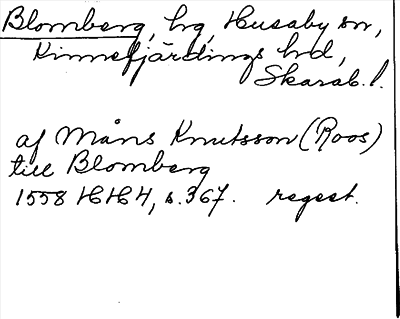 Blomberg, hg, Husaby sn,
Kinnefjärdings hd,
Skarab.l.
af Måns Knutsson (Roos)
till Blomberg
1558 HH4, s.367. regest.